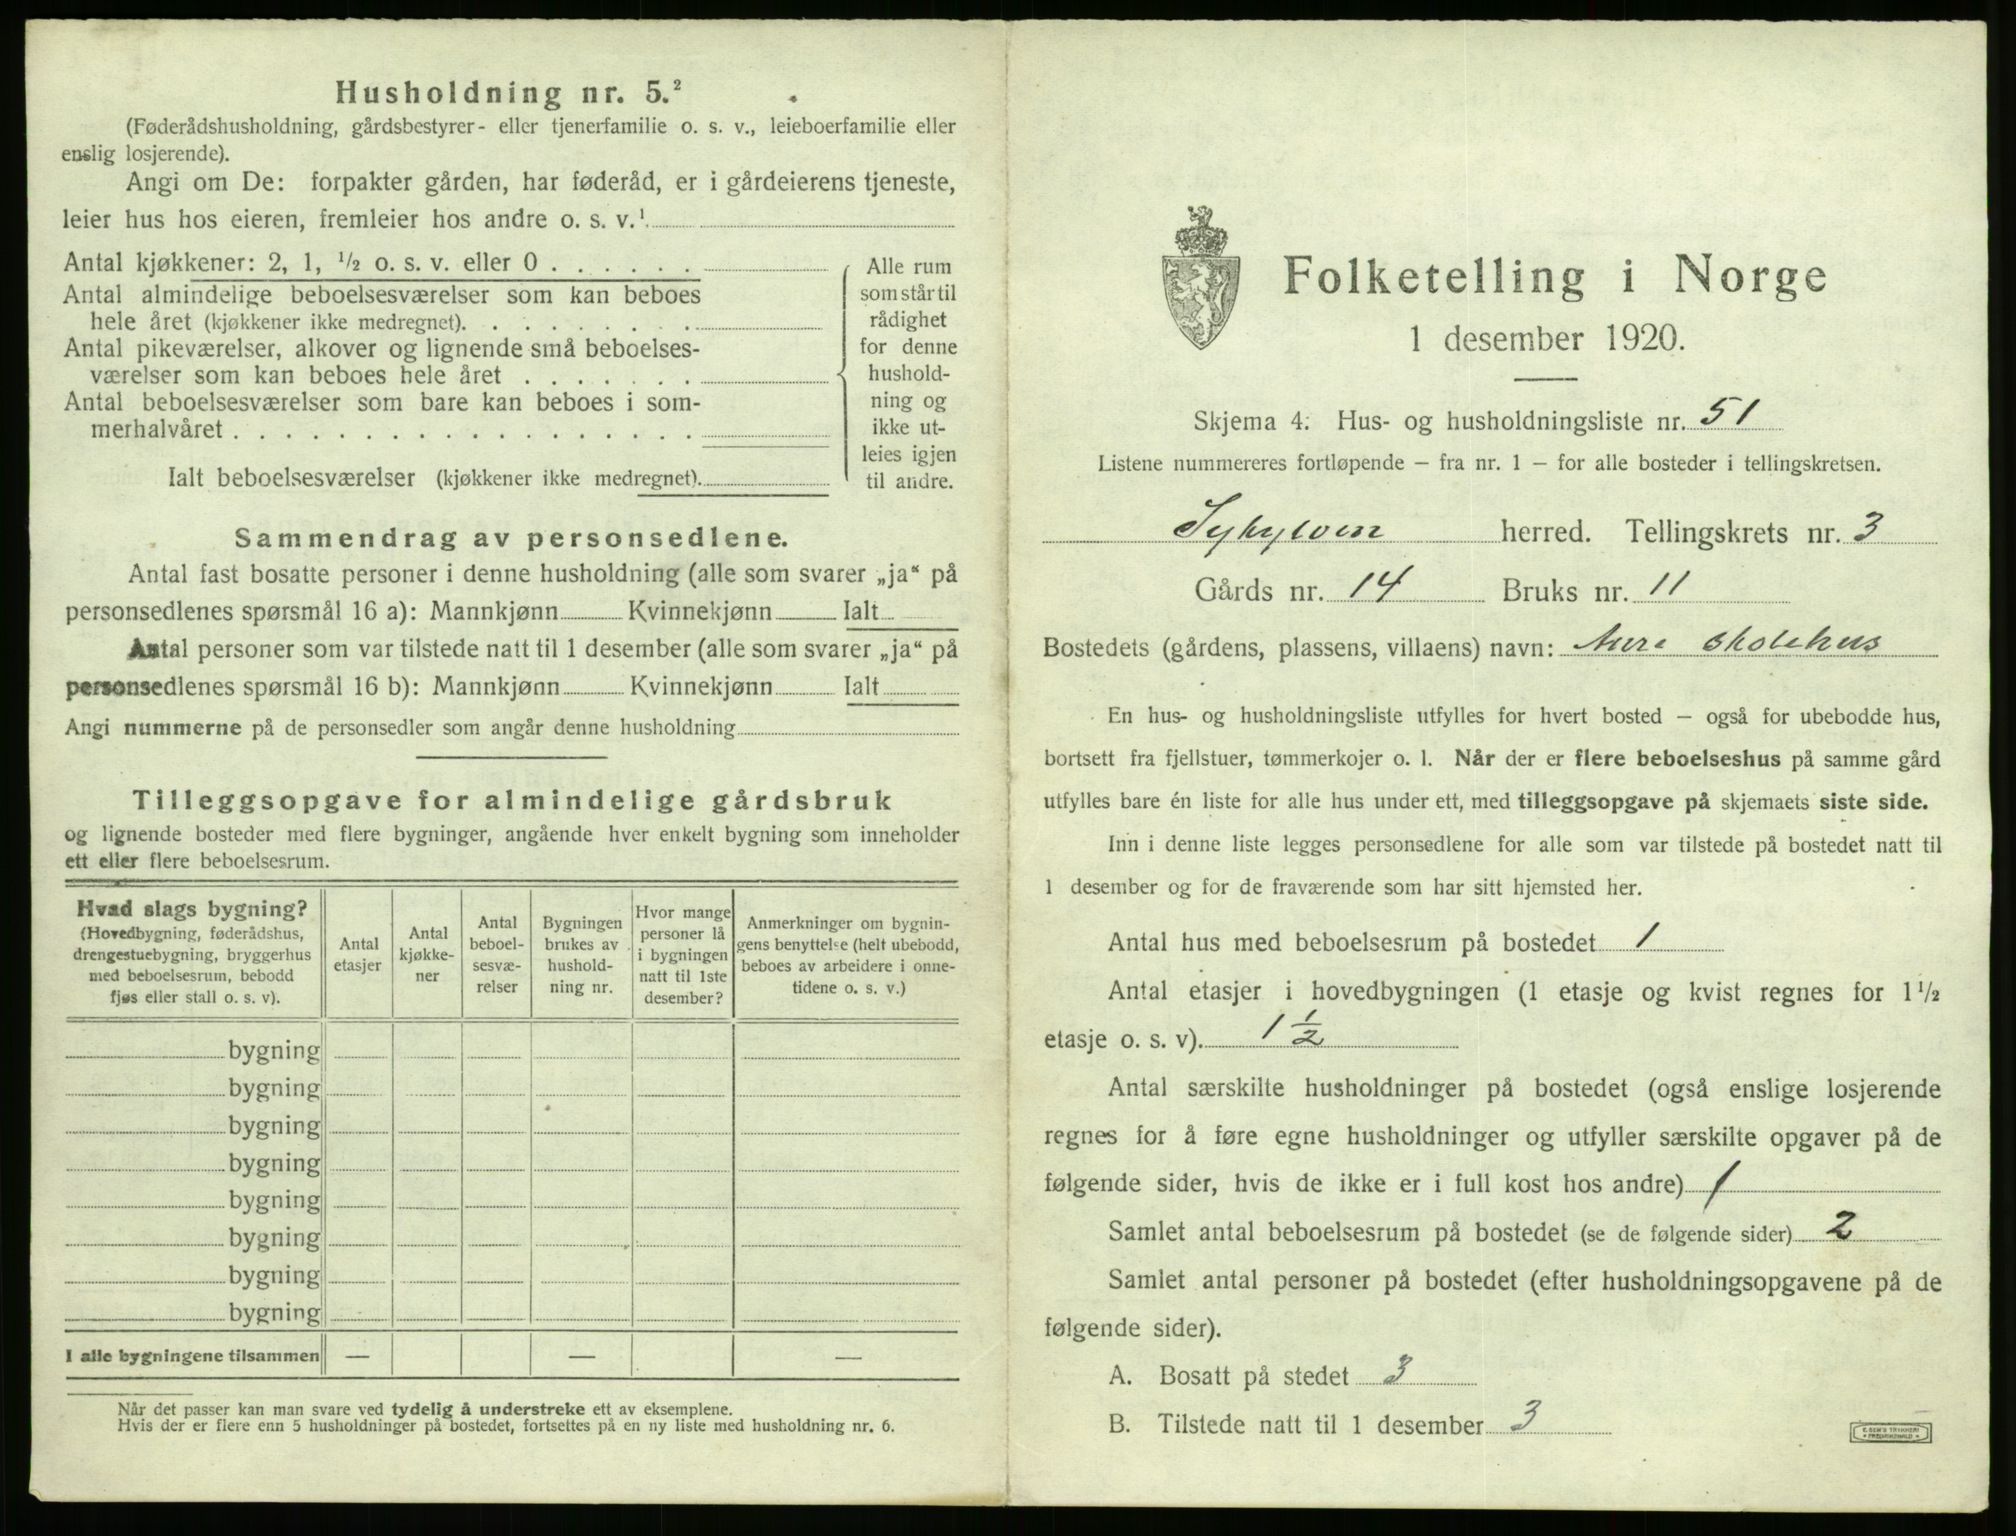 Husholdning nr. 5.²
(Føderådshusholdning, gårdsbestyrer- eller tjenerfamilie o. s. v., leieboerfamilie eller
enslig losjerende).
Angi om De: forpakter gården, har føderåd, er i gårdeierens tjeneste,
leier hus hos eieren, fremleier hos andre o. s. v.¹
Antal kjøkkener: 2, 1, ½ o. s. v. eller 0 . . . . . .
Antal almindelige beboelsesværelser som kan beboes
hele året (kjøkkener ikke medregnet). . . . . . . . .
Antal pikeværelser, alkover og lignende små beboelses-
værelser som kan beboes hele året . . . . . . .
Antal beboelsesværelser som bare kan beboes i som-
merhalvåret . . . . . . . . . . . . . . . . . .
Ialt beboelsesværelser (kjøkkener ikke medregnet).
Alle rum
som står til
rådighet
for denne
hushold-
ning og
ikke ut-
leies igjen
til andre.
Sammendrag av personsedlene.
Antal fast bosatte personer i denne husholdning (alle som svarer „ja“ på
personsedlenes spørsmål 16 a): Mannkjønn Kvinnekjønn Ialt
Antal personer som var tilstede natt til 1 desember (alle som svarer „ja“ på
personsedlenes spørsmål 16 b): Mannkjønn Kvinnekjønn Ialt
Angi nummerne på de personsedler som angår denne husholdning
Tilleggsopgave for almindelige gårdsbruk
og lignende bosteder med flere bygninger, angående hver enkelt bygning som inneholder
ett eller flere beboelsesrum.
Hvad slags bygning?
(Hovedbygning, føderådshus,
drengestuebygning, bryggerhus
med beboelsesrum, bebodd
fjøs eller stall o. s. v).
Antal
etasjer
Antal
kjøkke-
ner
Antal
beboel-
sesvæ-
relser
Bygningen
brukes av
hushold-
ning nr.
Hvor mange
personer lå
i bygningen
natt til 1ste
desember?
Anmerkninger om bygnin-
gens benyttelse (helt ubebodd,
beboes av arbeidere i onne-
tidene o. s. v.)
bygning
bygning
bygning
bygning
bygning
bygning
bygning
bygning
I alle bygningene tilsammen — — —
Når det passer kan man svare ved tydelig å understreke ett av eksemplene.
Hvis der er flere enn 5 husholdninger på bostedet, fortsettes på en ny liste med husholdning nr. 6.
Folketelling i Norge
1 desember 1920.
Skjema 4. Hus- og husholdningsliste nr. 51
Listene nummereres fortløpende – fra nr. 1 – for alle bosteder i tellingskretsen.
Sykylven herred. Tellingskrets nr. 3
Gårds nr. 14 Bruks nr. 11
Bostedets (gårdens, plassens, villaens) navn: Aure skolehus
En hus- og husholdningsliste utfylles for hvert bosted – også for ubebodde hus,
bortsett fra fjellstuer, tømmerkojer o. l. Når der er flere beboelseshus på samme gård
utfylles bare én liste for alle hus under ett, med tilleggsopgave på skjemaets siste side.
Inn i denne liste legges personsedlene for alle som var tilstede på bostedet natt til
1 desember og for de fraværende som har sitt hjemsted her.
Antal hus med beboelsesrum på bostedet 1
Antal etasjer i hovedbygningen (1 etasje og kvist regnes for 1½
etasje o. s. v). 1½
Antal særskilte husholdninger på bostedet (også enslige losjerende
regnes for å føre egne husholdninger og utfyller særskilte opgaver på de
følgende sider, hvis de ikke er i full kost hos andre) 1
Samlet antal beboelsesrum på bostedet (se de følgende sider) 2
Samlet antal personer på bostedet (efter husholdningsopgavene på de
følgende sider).
A. Bosatt på stedet 3
B. Tilstede natt til 1 desember 3